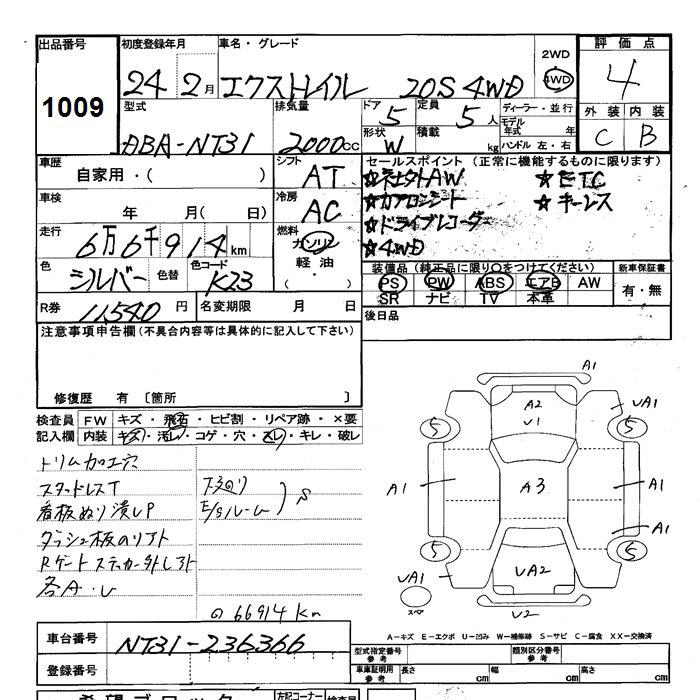 出品番号
1009
初度登録年月
24 2月
車名・グレード
エクストレイル 20S 4WD
2WD
4WD
評価点
4
外装 内装
C B
型式
DBA-NT31
排気量
2000cc
ドア 5
定員 5人
形状 W
積載 kg
ディーラー・並行
モデル年式 年
ハンドル 左・右
車歴
自家用・( )
シフト AT
車検
年 月( 日)
冷房 AC
走行
6万6千914km
燃料
ガソリン
軽油
( ・ )
色
シルバー
色替
色コード
K23
R券
11540円
名変期限 月 日
セールスポイント(正常に機能するものに限ります)
☆ ☆ETC
☆カプロンシート ☆キーレス
☆ドライブレコーダー
☆4WD
装備品(純正品に限り○をつけてください)
PS PW ABS エアB AW
SR ナビ TV 本革
新車保証書
有・無
後日品
注意事項申告欄(不具合内容等は具体的に記入して下さい)
修復歴 有〔箇所 〕
検査員記入欄
FW キズ・飛石・ヒビ割・リペア跡・×要
内装 キズ・汚レ・コゲ・穴・スレ・キレ・破レ
トリム加工穴
スタッドレスT
看板ぬり潰しP
ダッシュ板のリフト
Rゲートステッカー外し
各A・U
下廻り
E/Sルーム
S
66914km
A1
A2
U1
UA1
5
5
A1
A3
A1
A1
5
5
UA1
UA2
U2
スペア
A-キズ E-エクボ U-凹み W-補修跡 S-サビ C-腐食 XX-交換済
車台番号
NT31-236366
登録番号
型式指定番号 参考
類別区分番号 参考
車庫証明用 参考
長さ cm
幅 cm
高さ cm
希望ブロック
左記コーナー
検査員